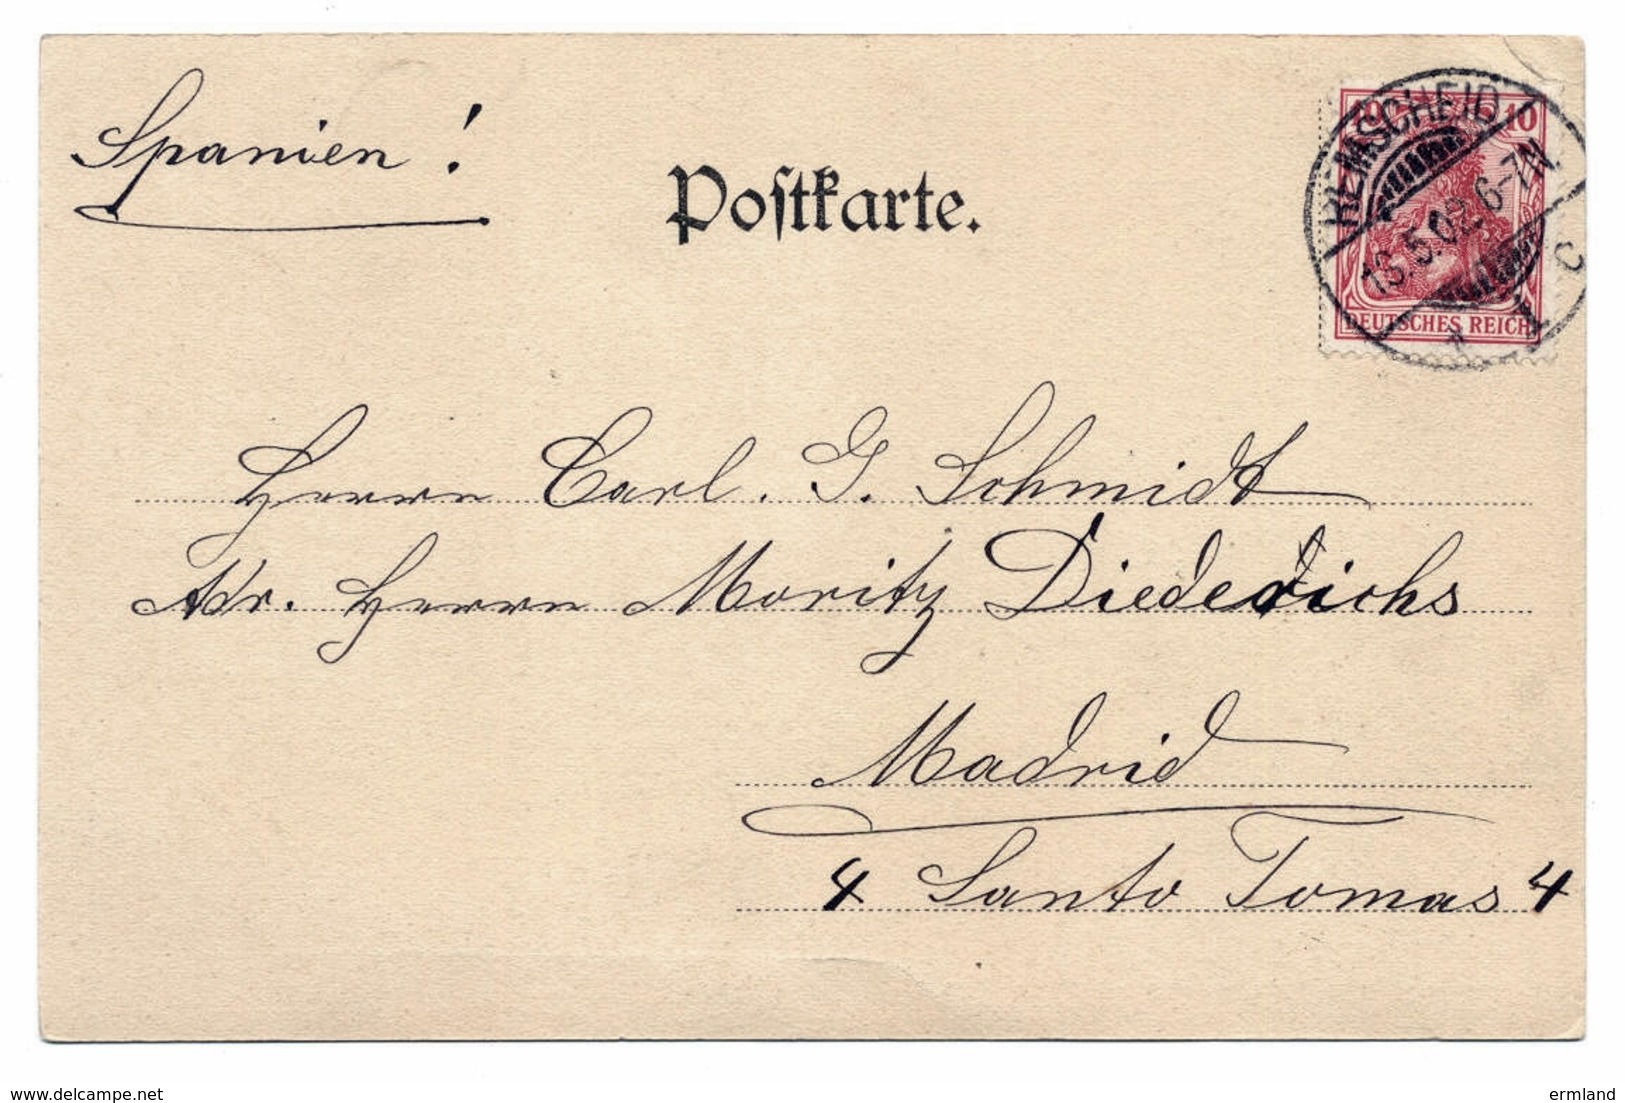 Spanien!
Postkarte.
10 10
REMSCHEID
13.5.02.6-7N.
* 1 c
DEUTSCHES REICH
Herrn Carl. G. Schmidt
Adr. Herrn Moritz Diederichs
Madrid
4 Santo Tomas 4
www.delcampe.net
ermland